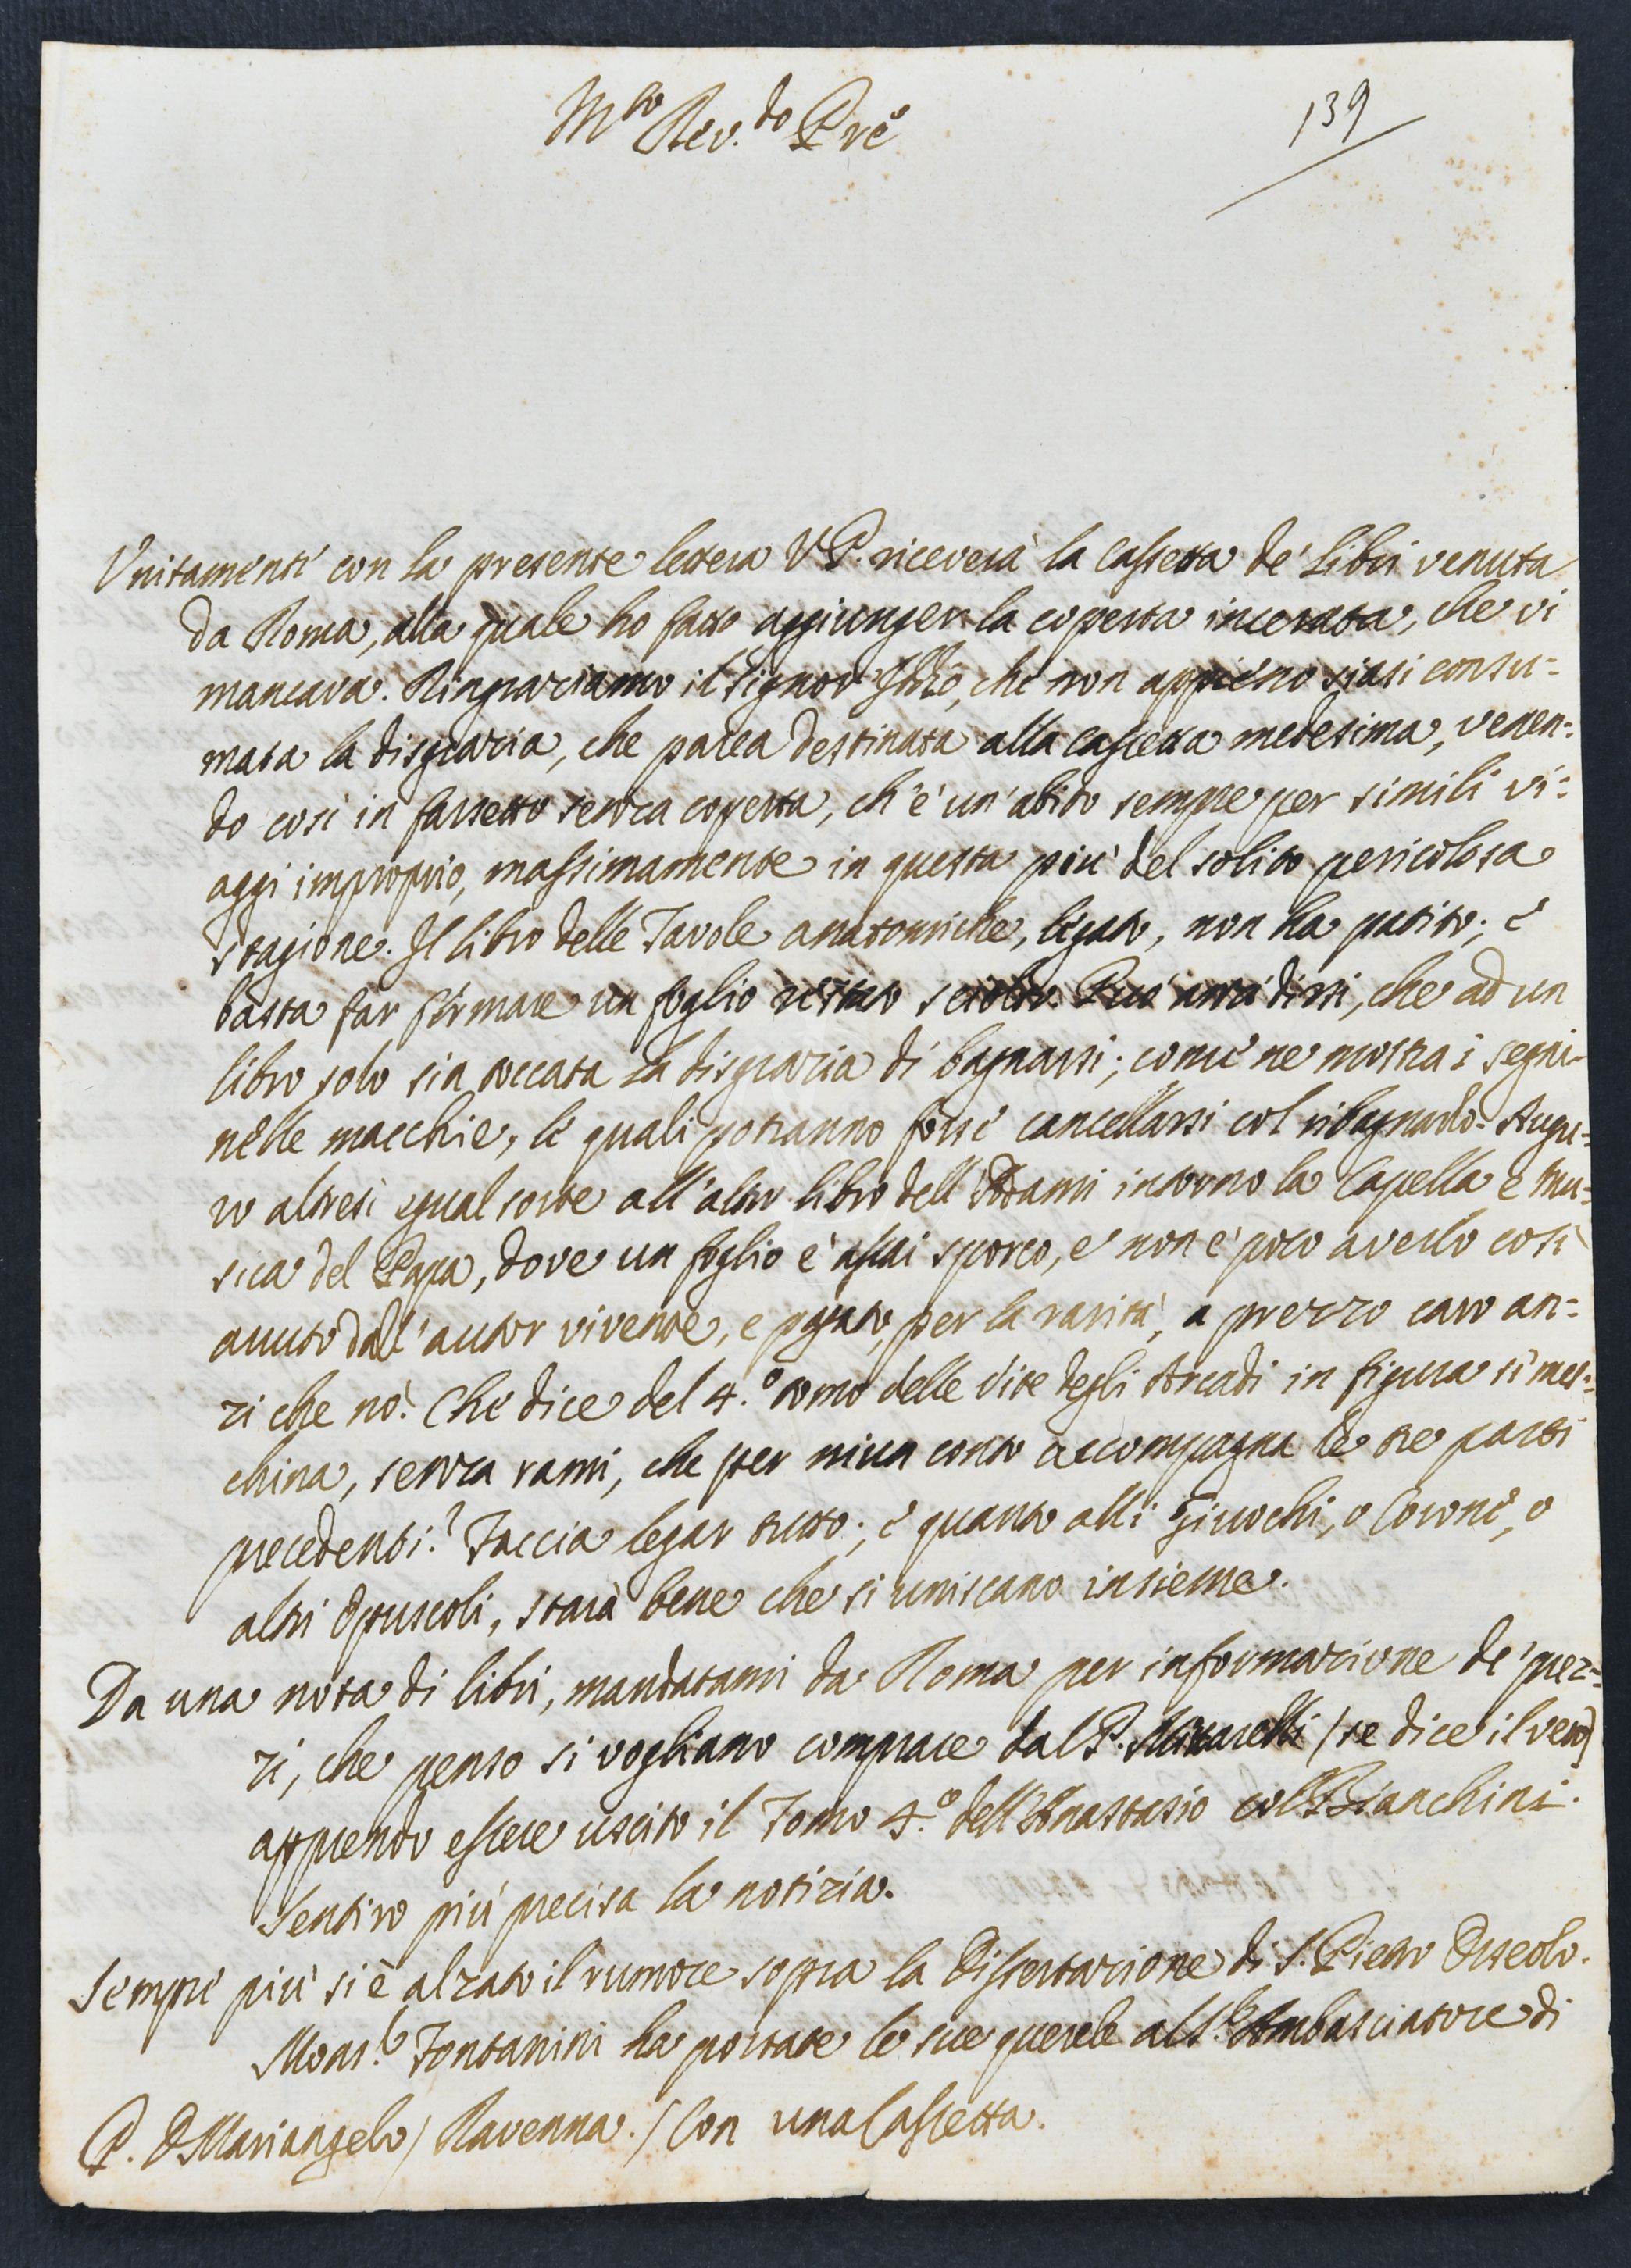 M.to Rev.do Pre
139
Unitamente con la presente lettera V. P. riceverà la cassetta de' Libri venuta
da Roma, alla quale ho fatto aggiunger la coperta incerata, che vi
mancava. Ringraziamo il Signor Iddio, che non appieno siasi consu=
mata la disgrazia, che parea destinata alla cassetta medesima, venen=
do così in farsetto senza coperta, ch'è un'abito sempre per simili vi=
aggi improprio, massimamente in questa più del solito pericolosa
stagione. Il libro delle Tavole anatomiche, legato, non ha patito; e
basta far fermare un foglio restato sciolto. Può anco dirsi, che ad un
libro solo sia toccata la disgrazia di bagnarsi; come ne mostra i segni
nelle macchie, le quali potranno forse cancellarsi col ribagnarlo. Augu=
ro altresì egual sorte all'altro libro dell'Adami intorno la Capella e Mu=
sica del Papa, dove un foglio è assai sporco, e non è poco averlo così
avuto dall'autor vivente, e pagato, per la rarità, a prezzo caro an=
zi che nò. Che dice del 4.o tomo delle Vite degli Arcadi in figura sì mes=
china, senza rami, che per niun conto accompagna le tre parti
precedenti? Faccia legar tutto; e quanto alli Giuochi, o Corone, o
altri Opuscoli, starà bene che si uniscano insieme.
Da una nota di libri, mandatami da Roma per informazione de' prez=
zi, che penso si vogliano comprare dal P. Mittarelli (se dice il vero)
apprendo essere uscito il Tomo 4.o dell'Anastasio col Bianchini.
Sentirò più precisa la notizia.
Sempre più si è alzato il rumore sopra la Dissertazione di S. Pietro Orseolo.
Mons.r Fontanini ha portate le sue querele al S.r Ambasciatore di
P. D. Mariangelo / Ravenna. / Con una Cassetta.